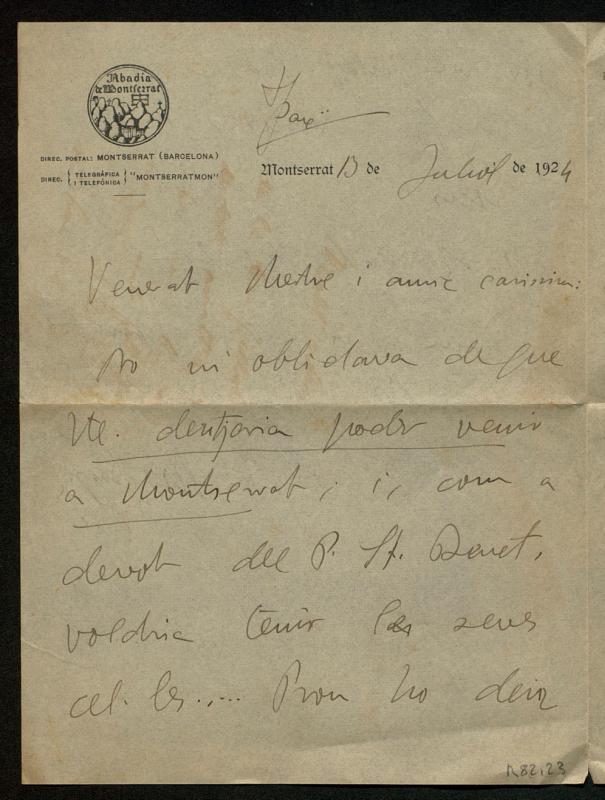 Abadia
de Montserrat
DIREC. POSTAL: MONTSERRAT (BARCELONA)
DIREC. { TELEGRÁFICA I TELEFÓNICA } "MONTSERRATMON"
Pax
Montserrat 13 de Juliol de 1924
Venerat Mestre i amic caríssim:
No m'oblidava de que
Vte. dentjaria poder venir
a Montserrat; i, com a
devot del P. St. Benet,
voldria tenir les seves
cel·les.... Prou ho deia
R.82.123